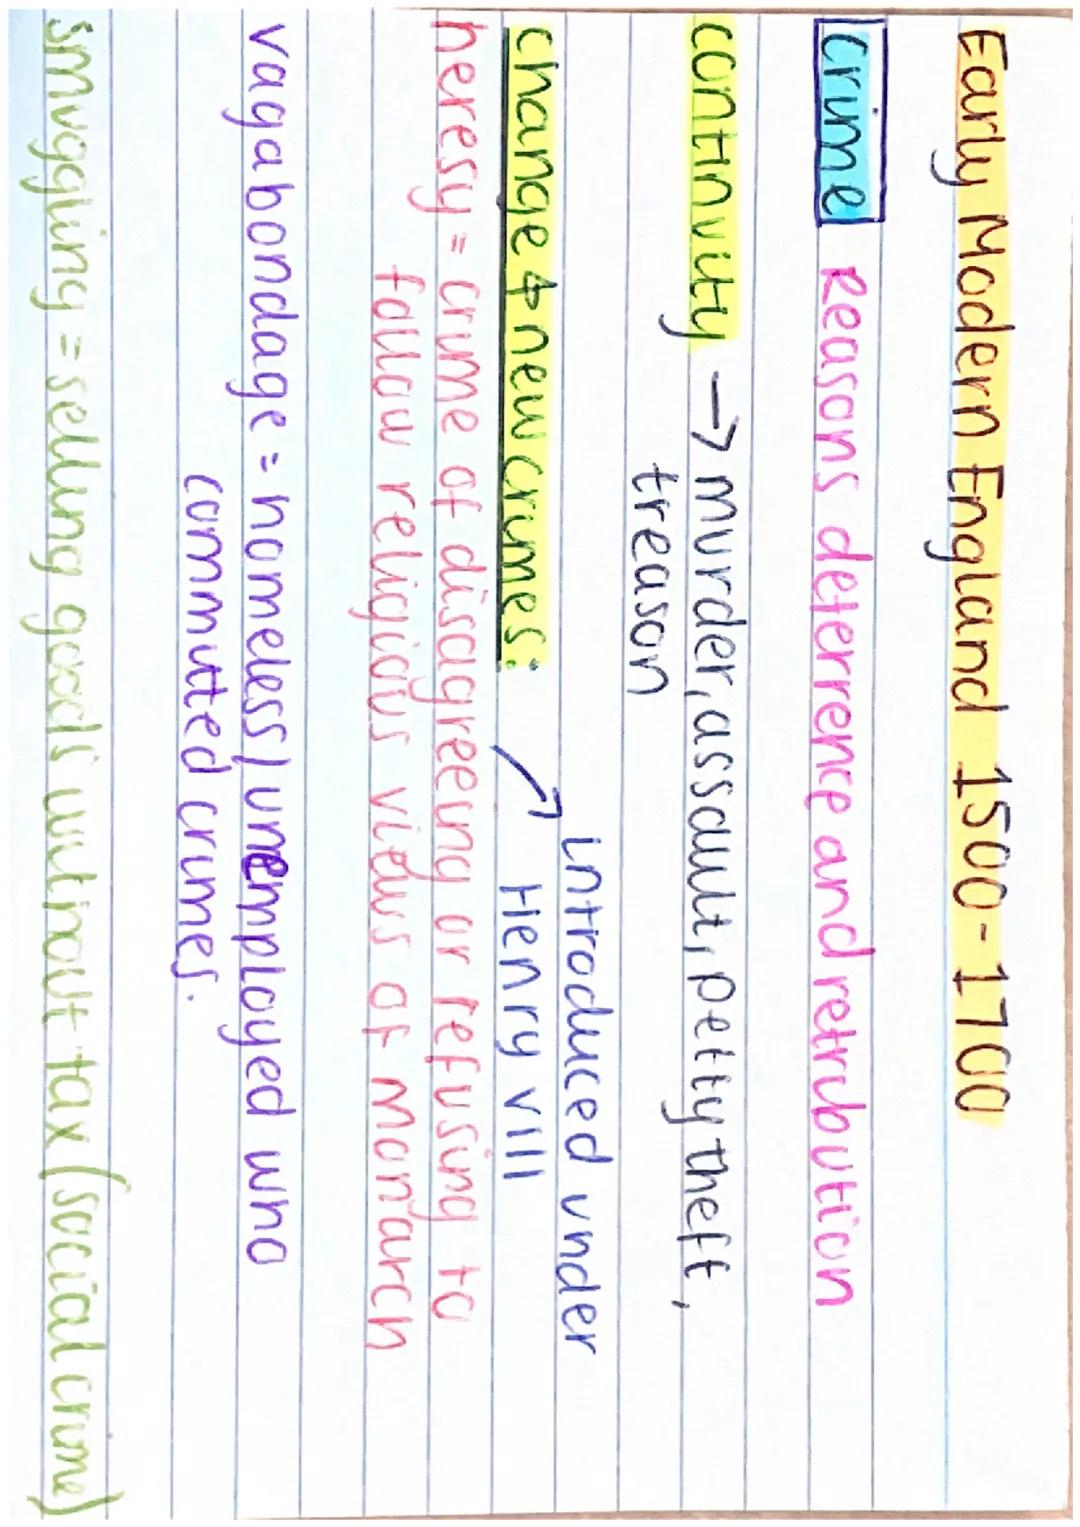 Early Modern England 1500-1700
crime Reasons deterrence and retribution
continuity → murder, assault, petty theft,
treason
introduced under
change & new crimes: → Henry VIII
heresy = crime of disagreeing or refusing to
follow religious views of monarch
vagabondage = homeless / unemployed who
committed crimes.
smuggling = selling goods without tax (social crime)